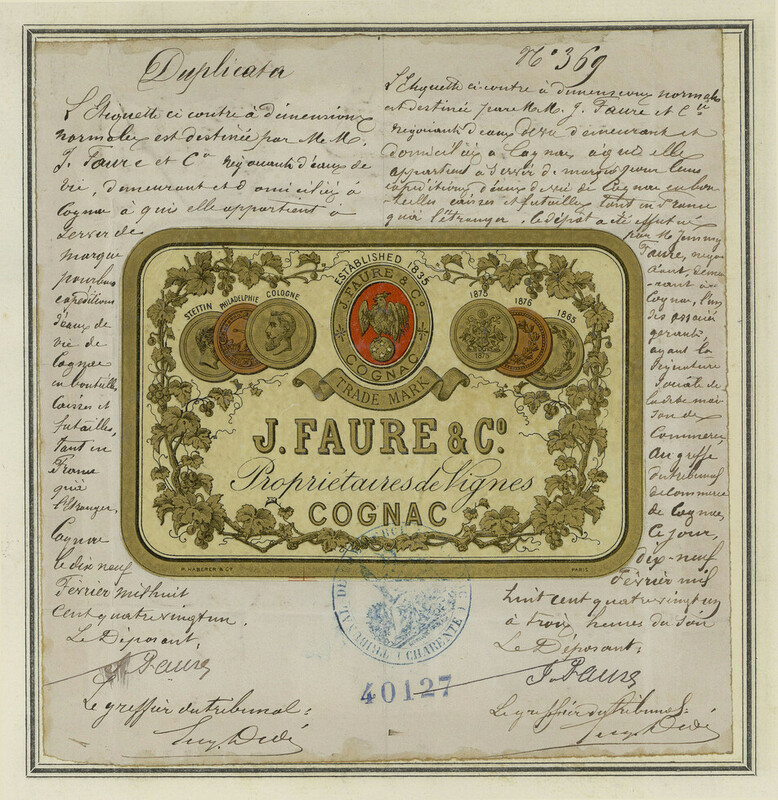 Duplicata
L'Etiquette ci contre à dimensions
normales est destinée par M.M.
J. Faure et Cie Négociants d'eaux de
vie, demeurant et domiciliés à
Cognac à qui elle appartient à
servir de
marque
pour leurs
expéditions
d'eaux de
vie de
Cognac
en bouteilles
caisses et
futailles,
tant en
France
qu'à
l'étranger.
Cognac
le dix neuf
Février mil huit
cent quatre vingt un.
Le Déposant,
J. Faure
Le greffier du tribunal:
N° 369
L'Etiquette ci contre à dimensions normales
est destinée par M.M. J. Faure et Cie
Négociants d'eaux de vie demeurant et
domiciliés à Cognac à qui elle
appartient à servir de marque pour leurs
expéditions d'eaux de vie de Cognac en bou-
teilles caisses et futailles tant en France
qu'à l'étranger. Le dépôt a été effectué
par M. Jemmy
Faure, négo-
ciant, demeu-
rant à
Cognac, l'un
des associés
gérants,
ayant la
signature
sociale de
la dite mai-
son de
Commerce,
au greffe
du tribunal
de Commerce
de Cognac,
Ce jour,
dix-neuf
Février mil
huit cent quatre vingt un
à trois heures du soir
Le Déposant:
J. Faure
Le greffier du tribunal:
ESTABLISHED 1835
J. FAURE & Co
COGNAC
STETTIN PHILADELPHIE COLOGNE
1875 1876 1865
1875
TRADE MARK
J. FAURE & Co.
Propriétaires de Vignes
COGNAC
P. HABERER & Cie PARIS
TRIBUNAL DE COMMERCE
(CHARENTE)
40127